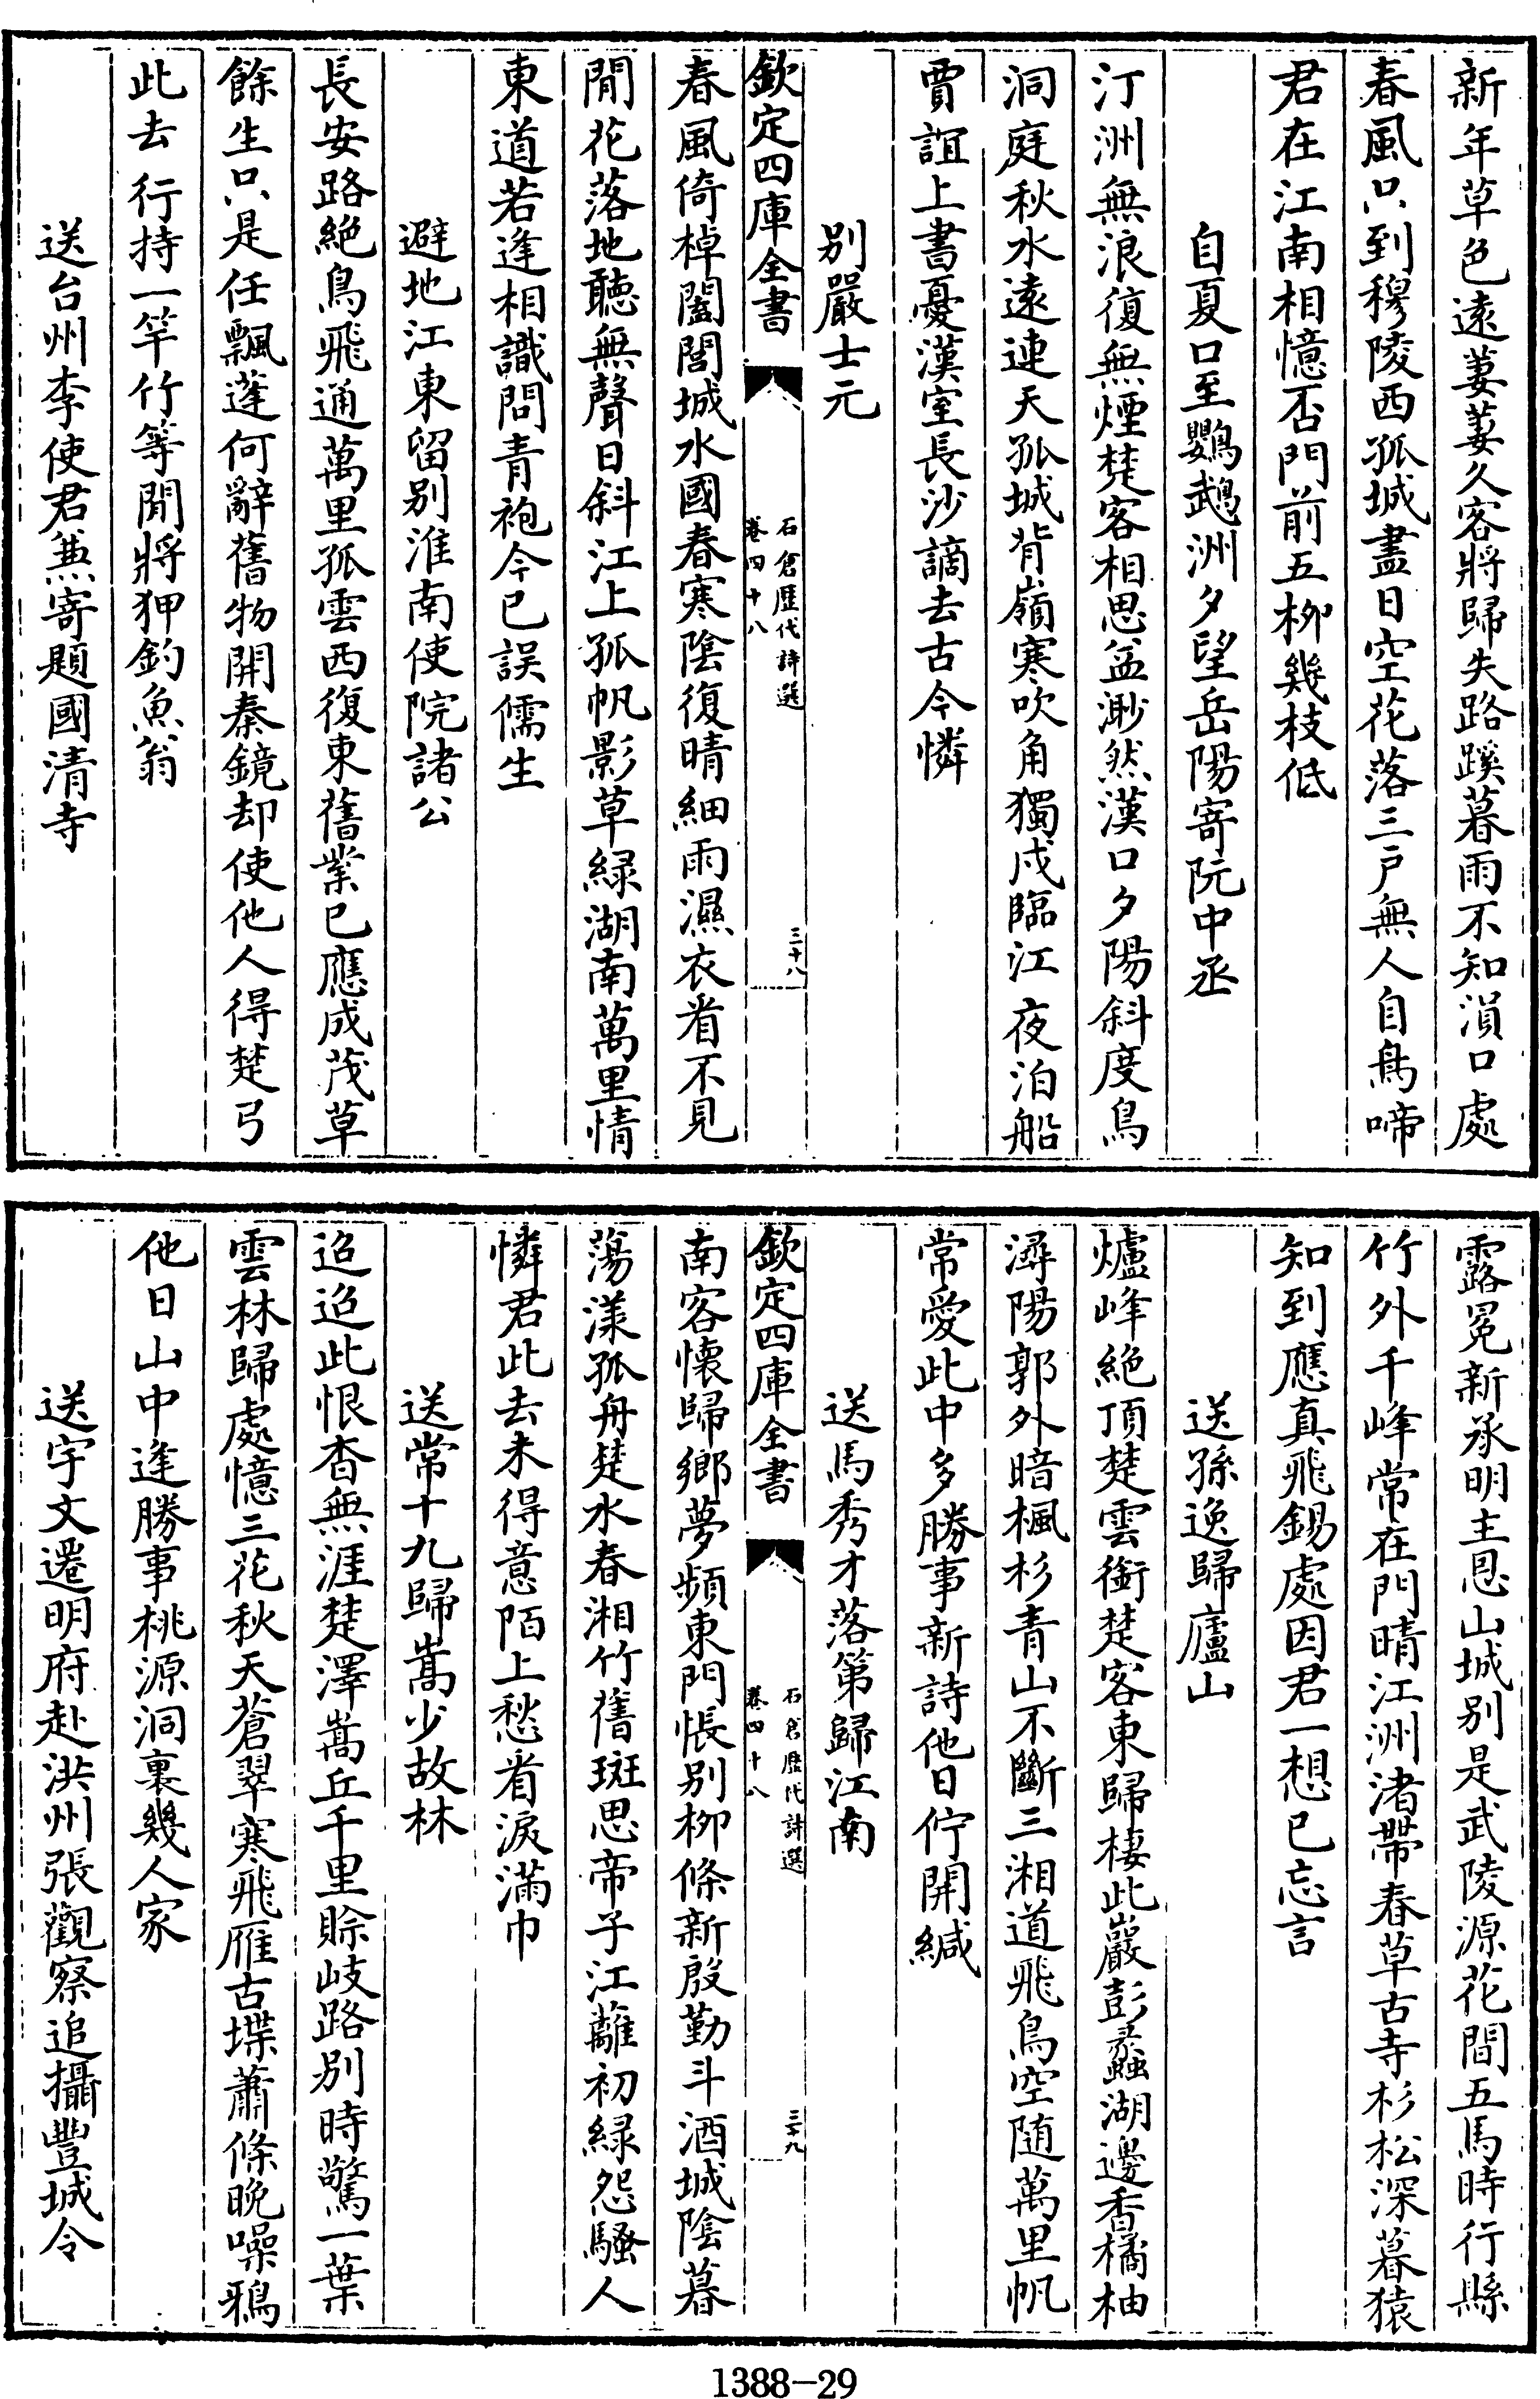 新年草色遠萋萋久客將歸失路蹊暮雨不知溳口處
春風只到穆陵西孤城盡日空花落三戶無人自鳥啼
君在江南相憶否門前五柳幾枝低
自夏口至鸚鵡洲夕望岳陽寄阮中丞
汀洲無浪復無煙楚客相思益渺然漢口夕陽斜度鳥
洞庭秋水遠連天孤城背嶺寒吹角獨戍臨江夜泊船
賈誼上書憂漢室長沙謫去古今憐
別嚴士元
欽定四庫全書
石倉歷代詩選
卷四十八
三十八
春風倚棹闔閭城水國春寒陰復晴細雨濕衣看不見
閒花落地聽無聲日斜江上孤帆影草綠湖南萬里情
東道若逢相識問青袍今已誤儒生
避地江東留別淮南使院諸公
長安路絕鳥飛通萬里孤雲西復東舊業已應成茂草
餘生只是任飄蓬何辭舊物開秦鏡却使他人得楚弓
此去行持一竿竹等閒將狎釣魚翁
送台州李使君兼寄題國清寺
露冕新承明主恩山城別是武陵源花間五馬時行縣
竹外千峰常在門晴江洲渚帶春草古寺杉松深暮猿
知到應真飛錫處因君一想已忘言
送孫逸歸廬山
爐峰絕頂楚雲銜楚客東歸棲此巖彭蠡湖邊香橘柚
潯陽郭外暗楓杉青山不斷三湘道飛鳥空隨萬里帆
常愛此中多勝事新詩他日佇開緘
送馬秀才落第歸江南
欽定四庫全書
石倉歷代詩選
卷四十八
三十九
南客懷歸鄉夢頻東門悵別柳條新殷勤斗酒城陰暮
蕩漾孤舟楚水春湘竹舊斑思帝子江蘺初綠怨騷人
憐君此去未得意陌上愁看淚滿巾
送常十九歸嵩少故林
迢迢此恨杳無涯楚澤嵩丘千里賒岐路別時驚一葉
雲林歸處憶三花秋天蒼翠寒飛雁古堞蕭條晚噪鴉
他日山中逢勝事桃源洞裏幾人家
送宇文遷明府赴洪州張觀察追攝豐城令
1388-29